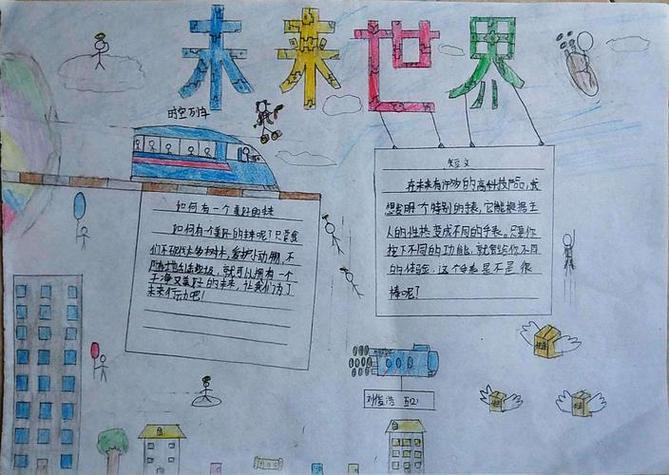 未来世界
时空列车
如何有一个美好的未来
如何有个美好的未来呢？只要我
们不砍伐树木，爱护小动物，不
随地乱扔垃圾，就可以拥有一个
干净又美好的未来，让我们为了
未来行动吧！
短文
在未来有许多的高科技产品，我
想发明个特别的手表，它能根据主
人的性格变成不同的手表。只要你
按下不同的功能，就会给你不同
的体验，这个手表是不是很
棒呢？